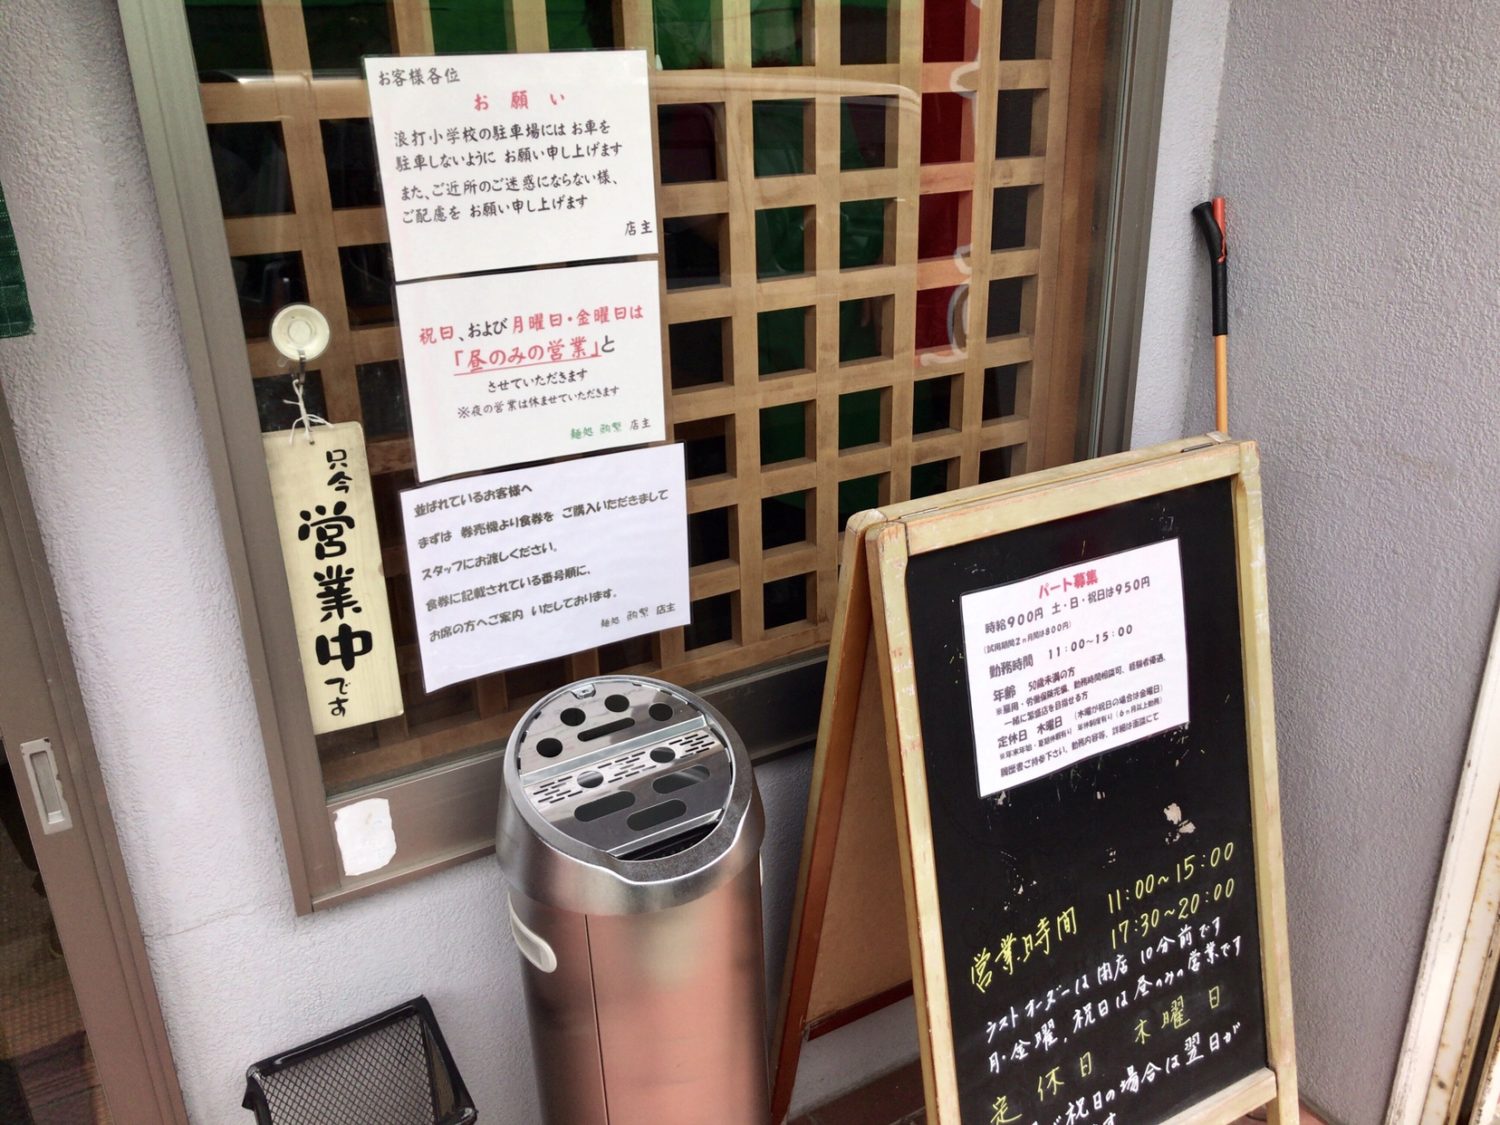 お客様各位
お願い
浪打小学校の駐車場には お車を
駐車しないように お願い申し上げます
また、ご近所のご迷惑にならない様、
ご配慮を お願い申し上げます
店主
祝日、および月曜日・金曜日は
「昼のみの営業」と
させていただきます
※夜の営業は休ませていただきます
麺処 店主
並ばれているお客様へ
まずは 券売機より食券を ご購入いただきまして
スタッフにお渡しください。
食券に記載されている番号順に、
お席の方へご案内 いたしております。
麺処 店主
只今営業中です
パート募集
時給900円 土・日・祝日は950円
(試用期間2ヵ月間は800円)
勤務時間 11:00~15:00
年齢 50歳未満の方
※雇用・労働保険完備、勤務時間相談可、経験者優遇、
一緒に繁盛店を目指せる方
定休日 木曜日 (木曜が祝日の場合は金曜日)
※年末年始・夏期休暇有り 年休制度有り(6ヵ月以上勤務)
履歴書ご持参下さい。勤務内容等、詳細は面談にて
営業時間 11:00~15:00
17:30~20:00
ラストオーダーは閉店10分前です
月・金曜、祝日は昼のみの営業です
定休日 木曜日
が祝日の場合は翌日が